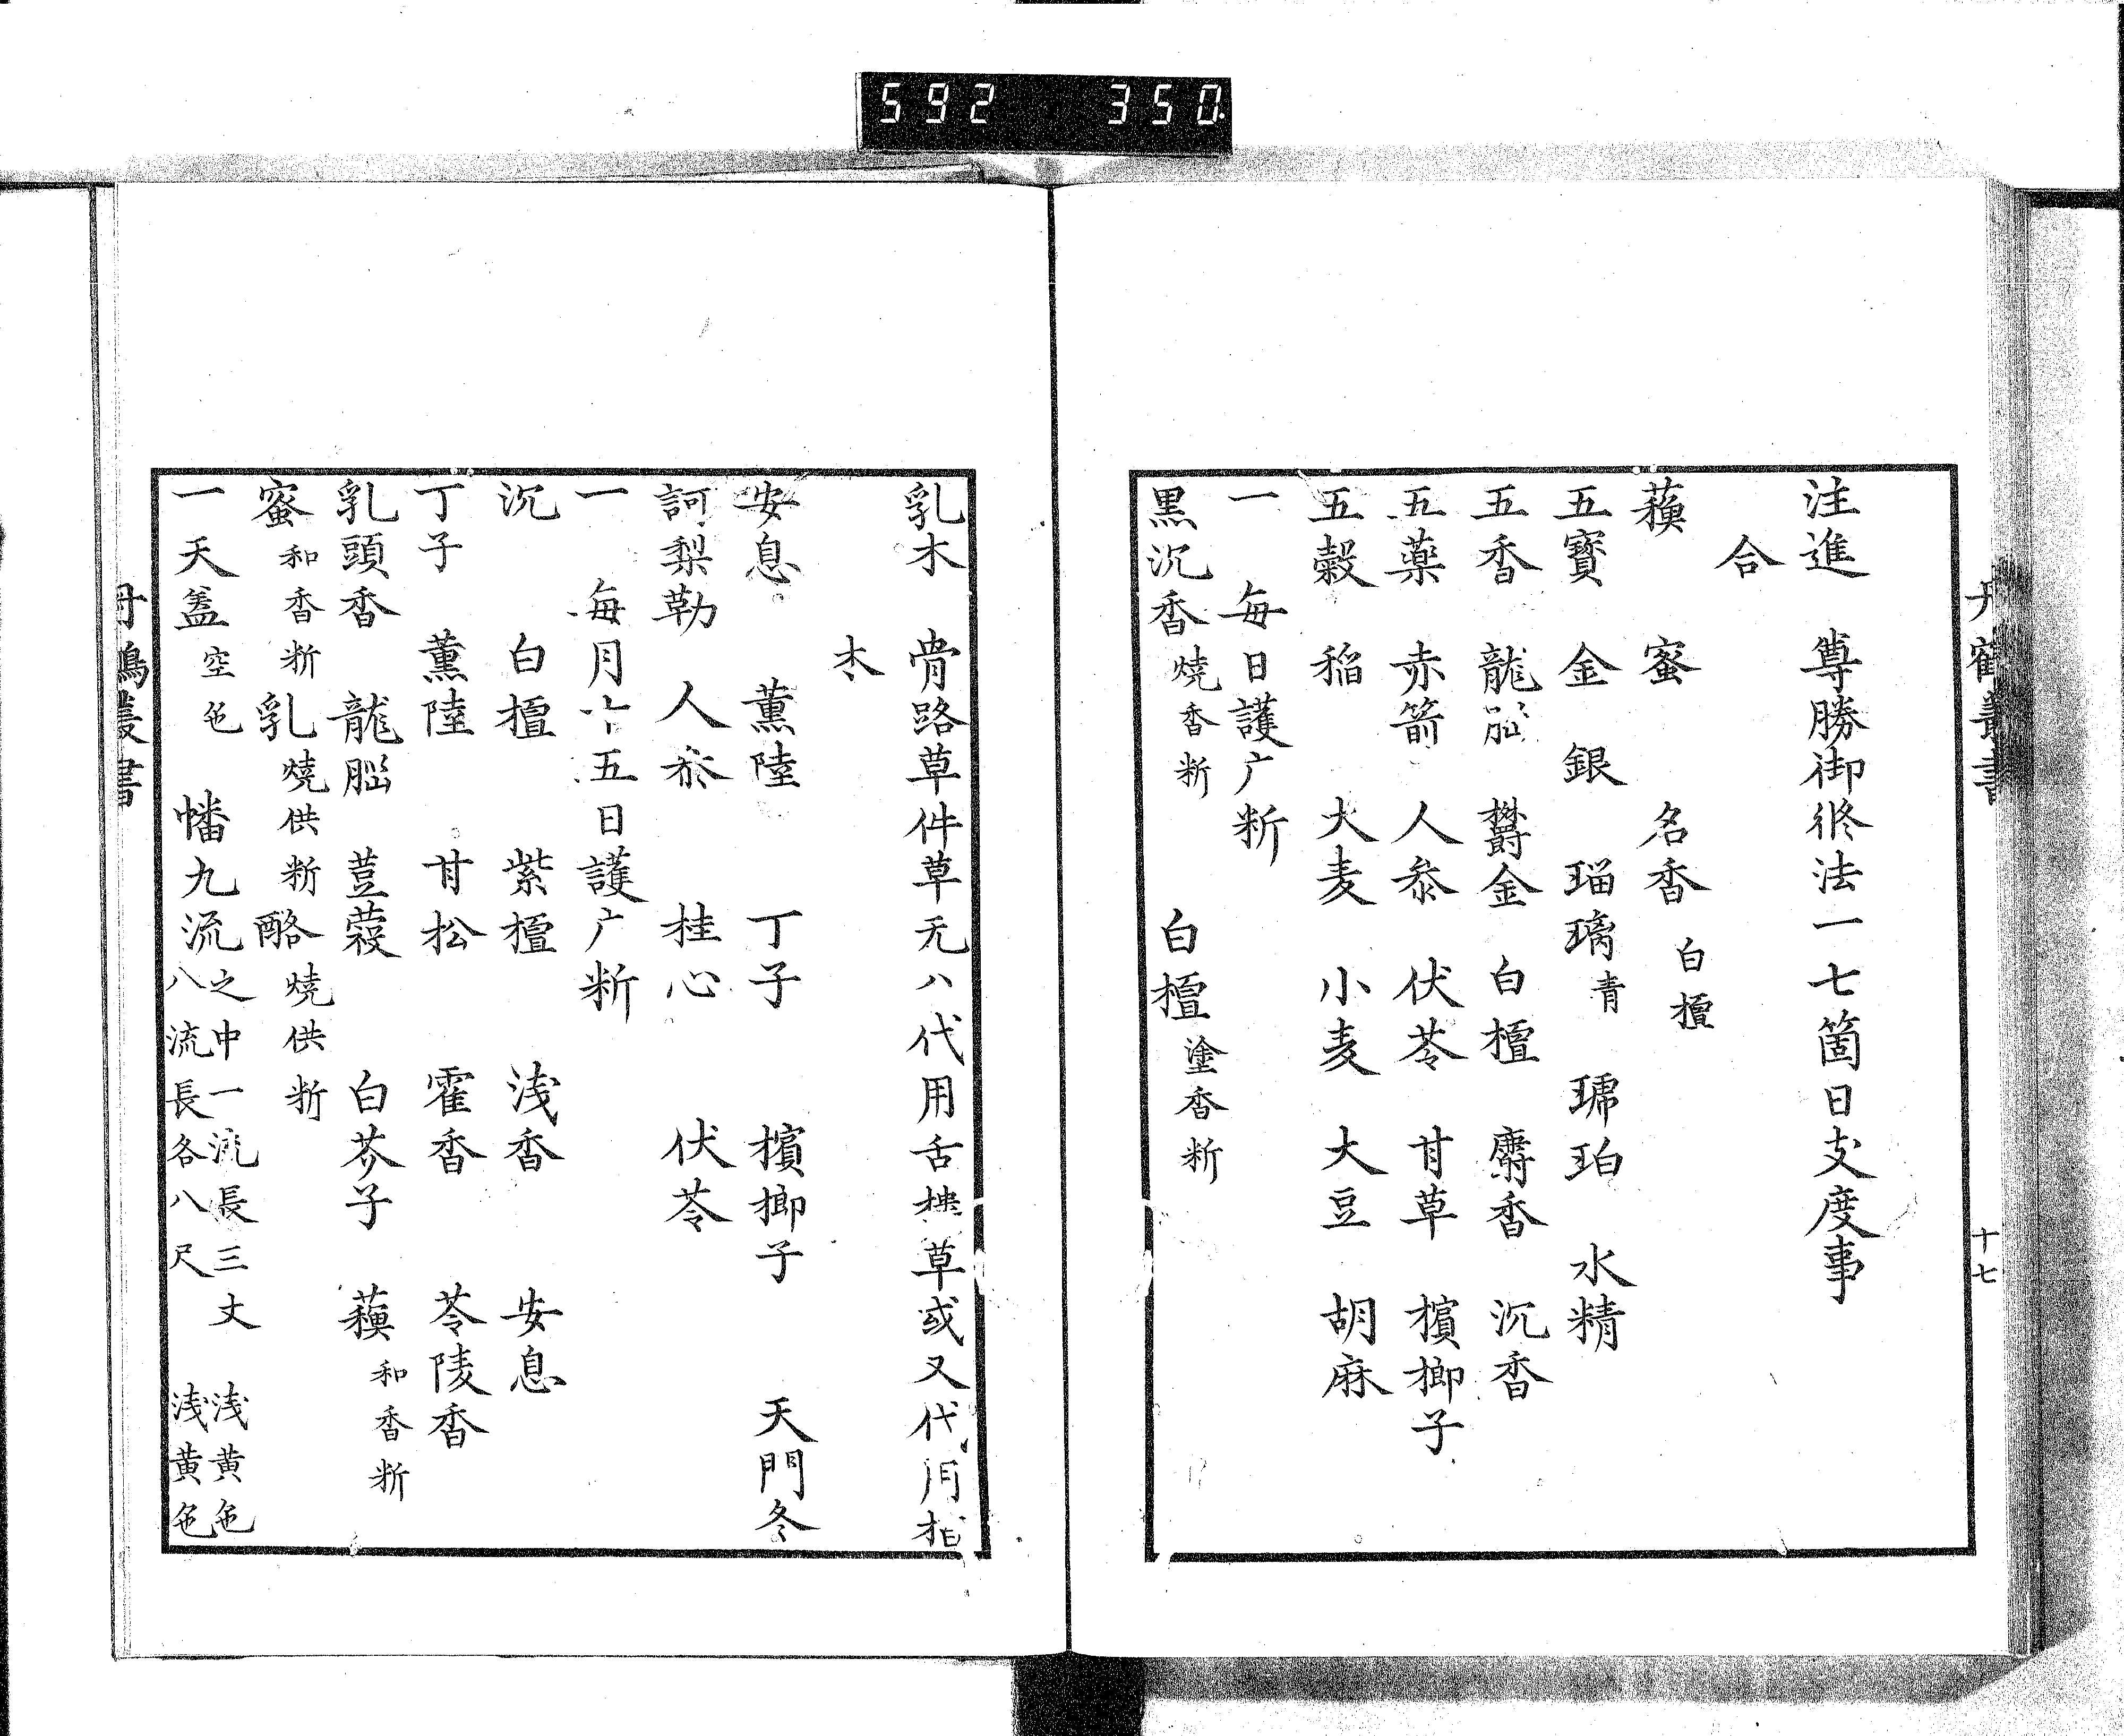 592 350
注進 尊勝御修法一七箇日支度事
合
蘇 蜜 名香 白檀
五寳 金 銀 瑠璃 青 琥珀 水精
五香 龍脳 欝金 白檀 麝香 沉香
五藥 赤箭 人叅 伏苓 甘草 檳榔子
五穀 稲 大麦 小麦 大豆 胡麻
一 毎日護广新
黒沉香 燒香新 白檀 塗香新
十七
乳木 骨路草件草无八代用舌 草或又代用
木
安息 薫陸 丁子 檳榔子 天門冬
訶梨勒 人叅 桂心 伏苓
一 毎月十五日護广新
沉 白檀 紫檀 浅香 安息
丁子 薫陸 甘松 霍香 苓陵香
乳頭香 龍脳 荳蔲 白芥子 蘇 和香新
蜜 和香新 乳 燒供新 酪 燒供新
一天盖 空色 幡九流 之中一流長三丈 浅黄色
八流長各八尺 浅黄色